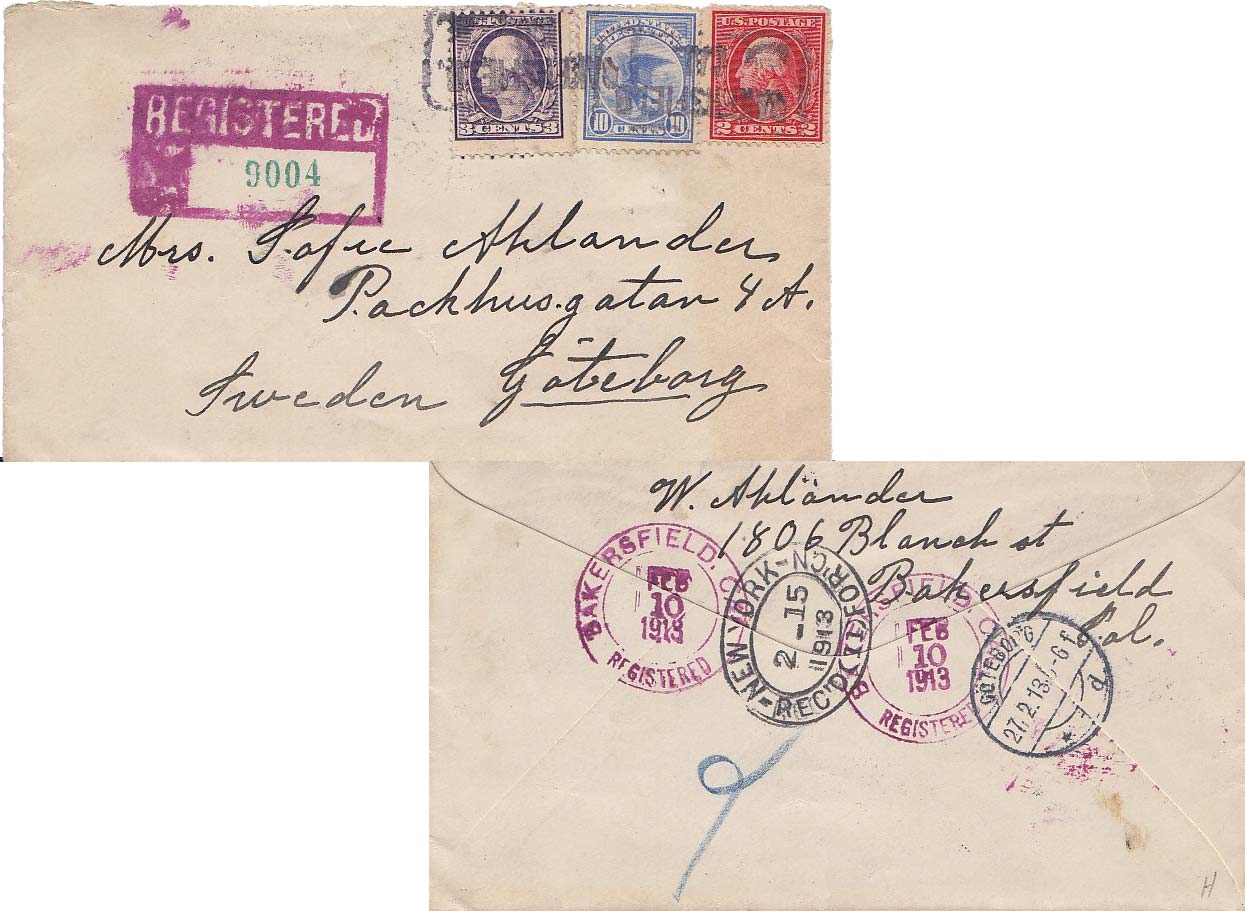 U.S. POSTAGE
3 CENTS 3
UNITED STATES
REGISTRY
10 CENTS 10
U.S. POSTAGE
2 CENTS 2
REGISTERED
9004
Mrs. Sofie Ahlander
Packhusgatan 4 A.
Sweden Göteborg
W. Ahländer
1806 Blanch st
Bakersfield
Cal.
BAKERSFIELD, C
FEB
10
1913
REGISTERED
NEW YORK-
2-15
1913
REC'D
FEB
10
1913
REGISTERED
GÖTEBORG
27.2.13
H